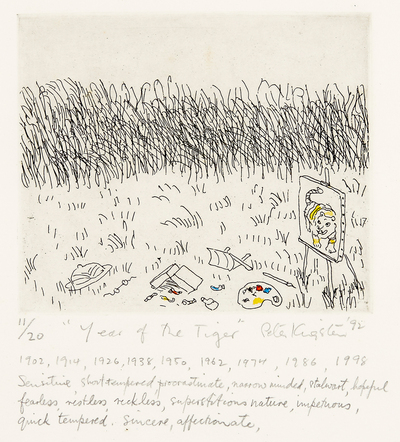 11/20 "Year of the Tiger" Peter Kingston '92
1902, 1914, 1926, 1938, 1950, 1962, 1974, 1986, 1998
Sensitive short tempered procrastinate, narrow minded, stalwart hopeful
fearless restless reckless, superstitious nature, impetuous,
quick tempered. Sincere, affectionate,